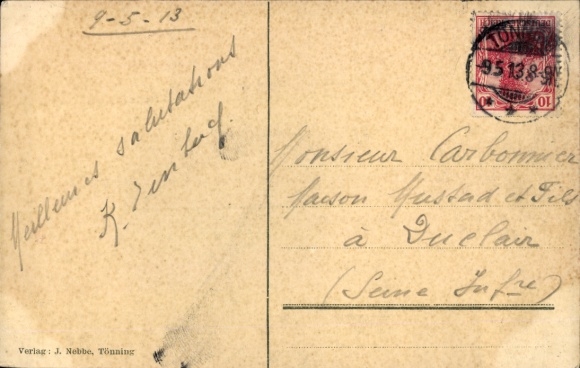 9-5-13
Meilleures salutations
K.
Monsieur Carbonnier
Maison Mustad et Fils
à Duclair
(Seine Infre)
Verlag: J. Nebbe, Tönning
9.5.13.8-9V
10 10